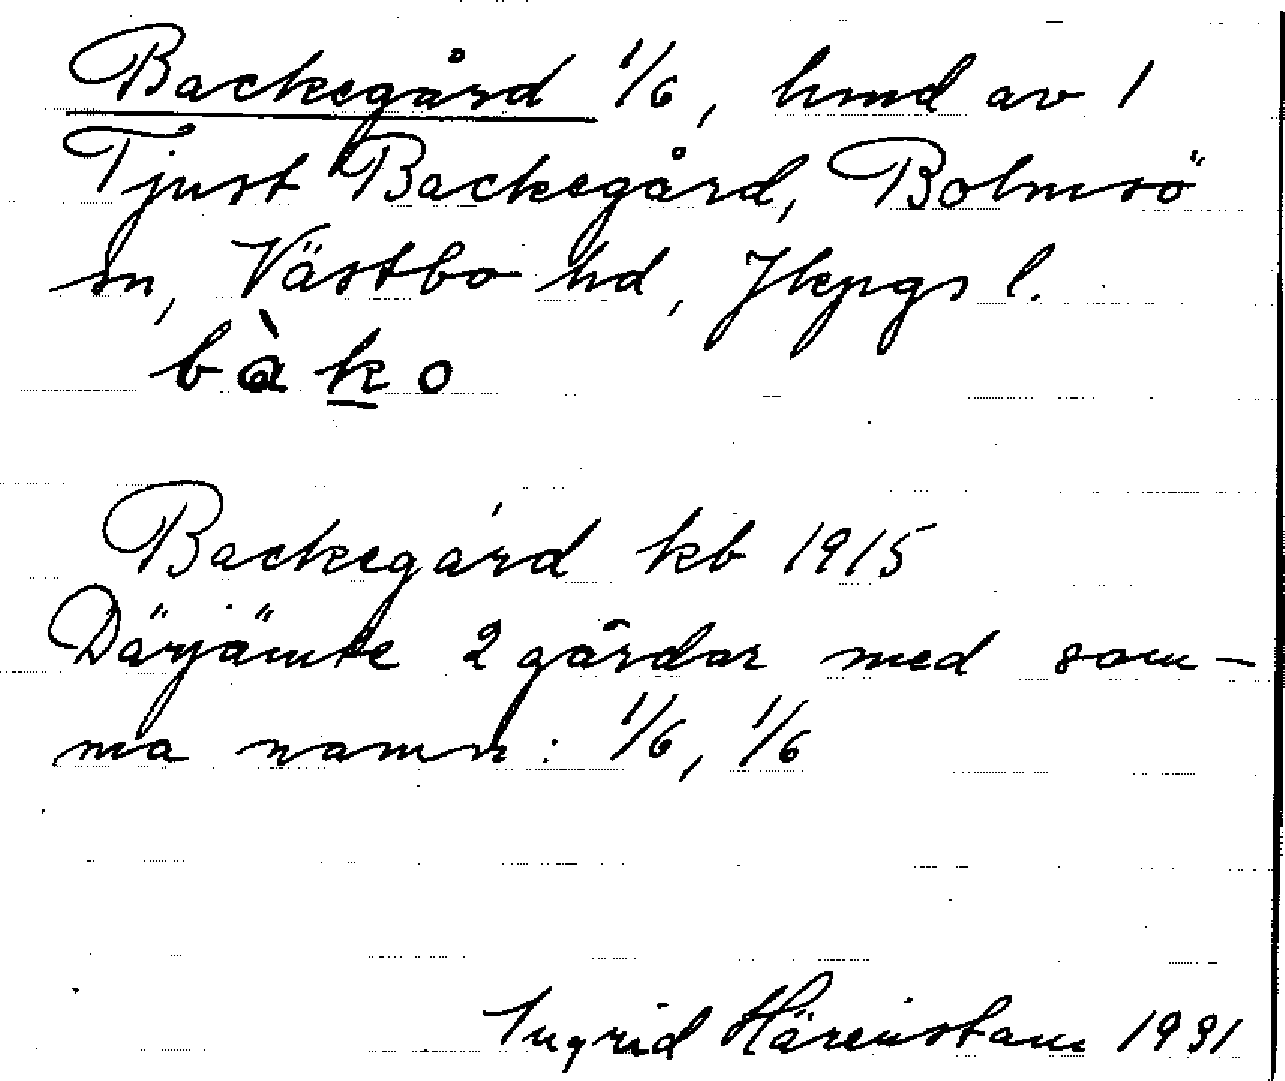 Backegård 1/6, hmd av 1
Tjust Backegård, Bolmsö
sn, Västbo hd, Jkpgs l.
bàko
Backegård kb 1915
Därjämte 2 gårdar med sam-
ma namn: 1/6, 1/6
Ingrid Härenstam 1931